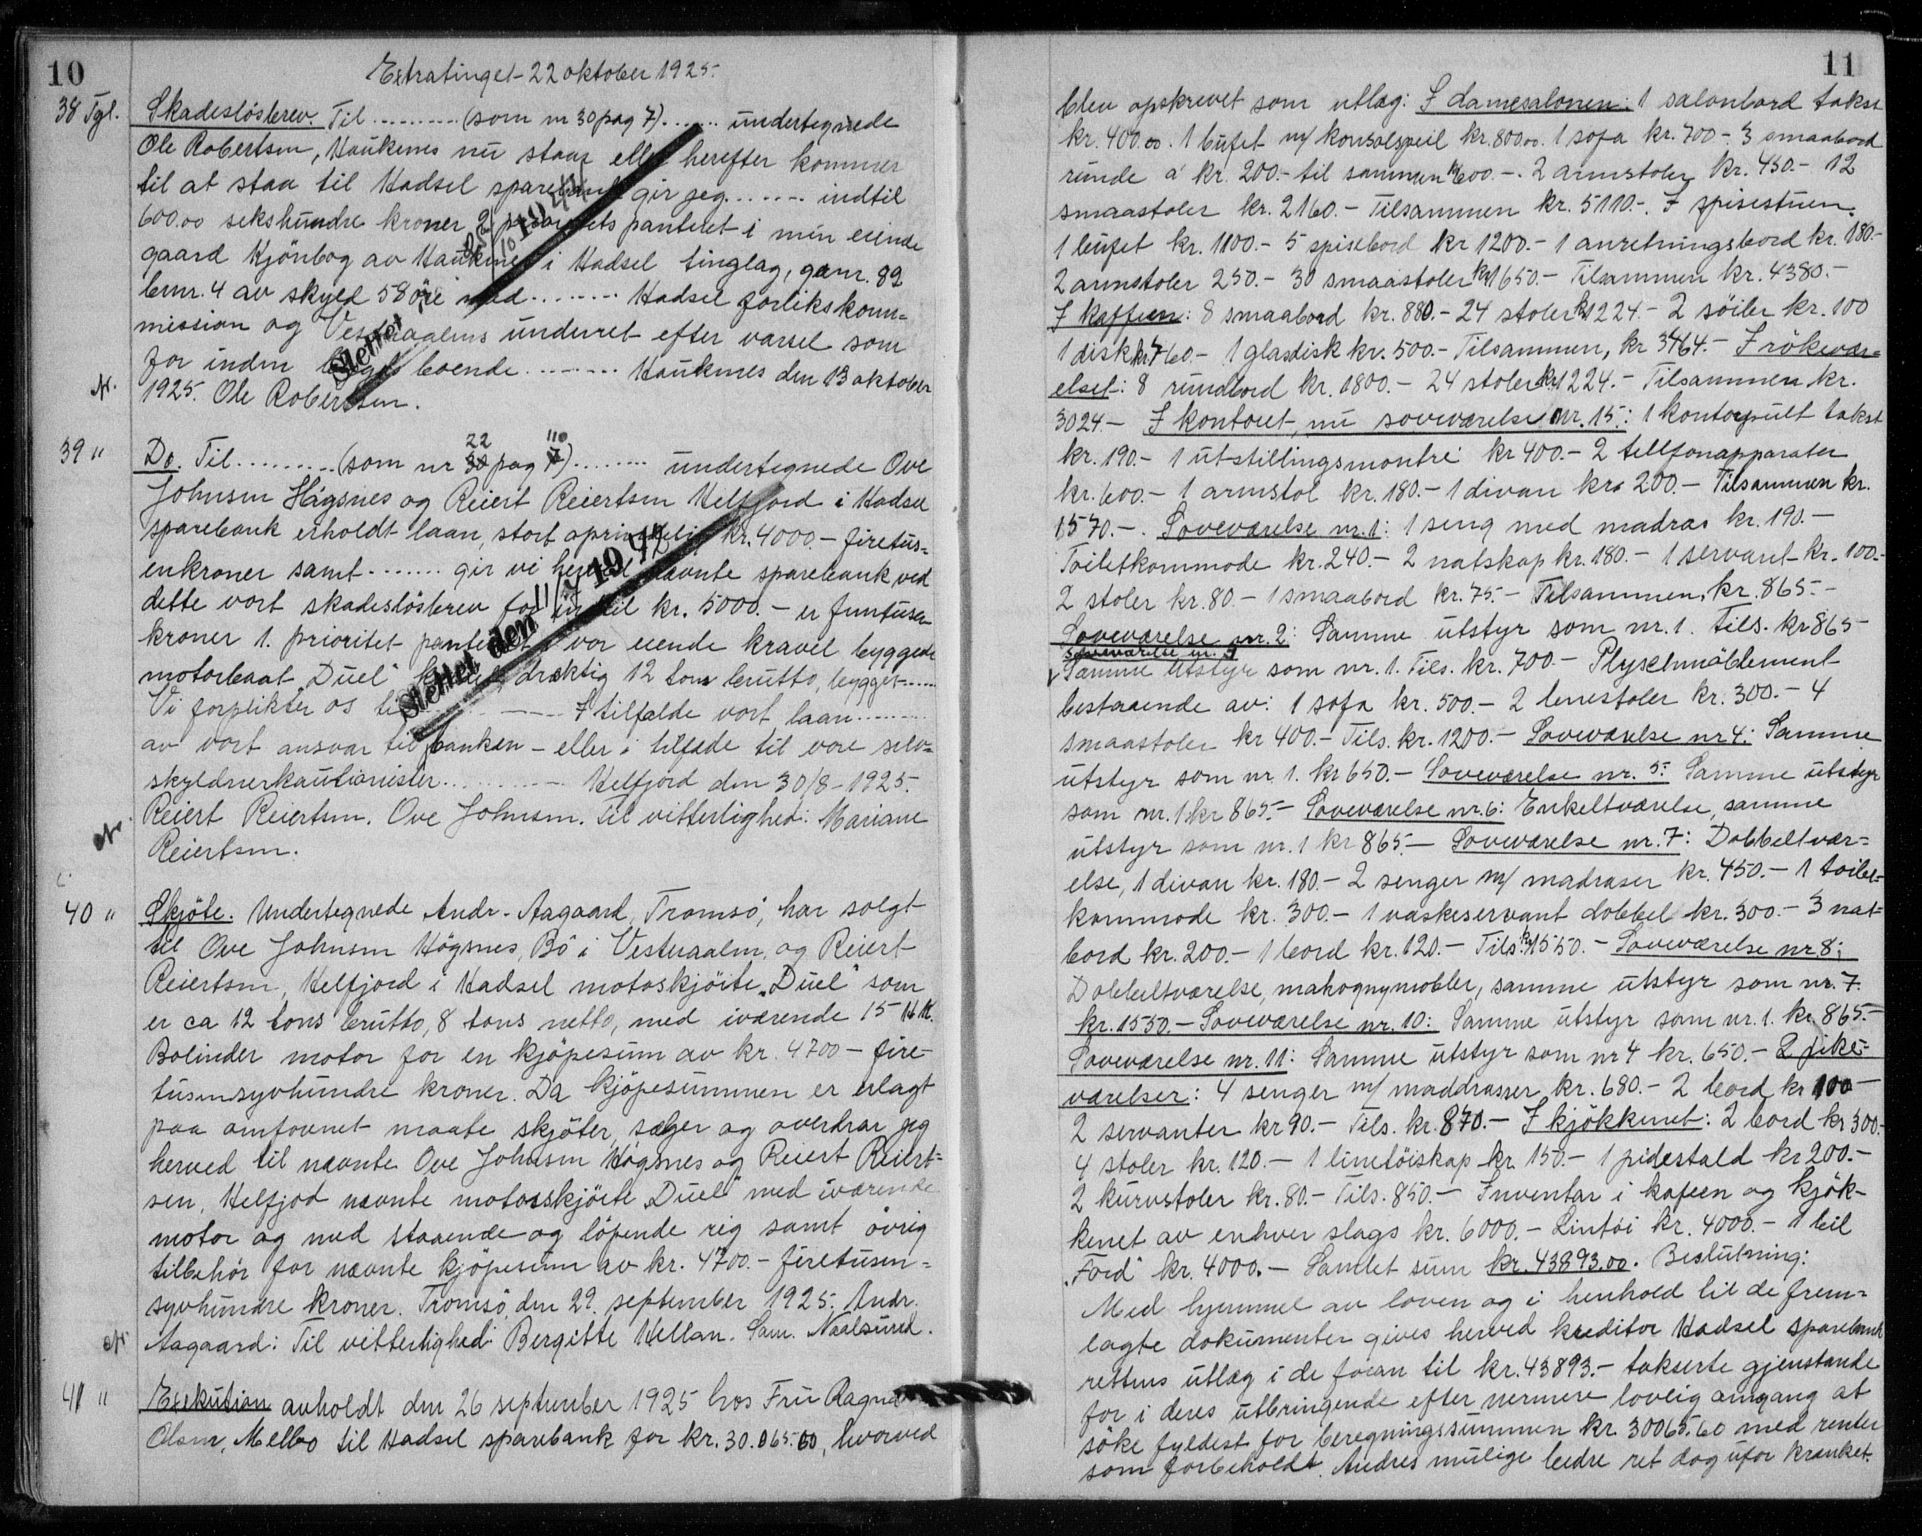 10
Extratinget 22 oktober 1925.
38 Tgl. Skadesløsbrev. Til .......... (som nr 30 pag 7) ....... undertegnede
Ole Robertsen, Haukenes nu staar eller herefter kommer
til at staa til Hadsel sparebank gir jeg ....... indtil
600.00 sekshundre kroner 2 prioritets panteret i min eiende
gaard Kjönbog av Haukenes i Hadsel tinglag, gnr. 82
brnr. 4 av skyld 58 öre med ........ Hadsel forlikskom=
mission og Vesteraalens underret efter varsel som
for inden bygd boende ........ Haukenes den 13 oktober
1925. Ole Robertsen.
Slettet 19
39 " Do. Til .......... (som nr 30 22 pag 7 110) ........ undertegnede Ove
Johnsen Högsnes og Reiert Reiertsen Helfjord i Hadsel
sparebank erholdt laan, stort oprindelig kr. 4000.- firetus=
enkroner samt ....... gir vi herved nævnte sparebank ved
dette vort skadeslösbrev for indtil kr. 5000.- er femtusen
kroner 1. prioritet panteret i vor eiende kravel byggede
motorbaat "Duel" drektig 12 tons brutto, bygget ......
Vi forplikter os til ....... I tilfælde vort laan ........
av vort ansvar til banken - eller i tilfælde til vore selv=
skyldnerkautionister .......... Helfjord den 30/8 - 1925.
Reiert Reiertsen. Ove Johnsen. Til vitterlighed: Mariane
Reiertsen.
Slettet den 11/7 1942
40 " Skjöte. Undertegnede Andr. Aagaard, Tromsö, har solgt
til Ove Johnsen Högsnes, Bö i Vesteraalen, og Reiert
Reiertsen, Helfjord i Hadsel motorskjöite "Duel" som
er ca 12 tons brutto, 8 tons netto, med iværende 15 HK.
Bolinder motor for en kjöpesum av kr. 4700 - fire-
tusensyvhundre kroner. Da kjöpesummen er erlagt
paa omforenet maate skjöter, sælger og overdrar jeg
herved til nævnte Ove Johnsen Högsnes og Reiert Reiert=
sen, Helfjod nævnte motorskjöite "Duel" med iværende
motor og med staaende og löpende rig samt övrig
tilbehör for nævnte kjöpesum av kr. 4700.- firetusen=
syvhundre kroner. Tromsö, den 29. september 1925. Andr.
Aagaard: Til vitterlighed Bergitte Hellan. Sam. Naalsund.
41 " Exekution avholdt den 26 september 1925 hos Fru Ragna
Olsen, Melbo til Hadsel sparebank for kr. 30.065.60, hvorved
11
blev opskrevet som utlæg: I damesalonen: 1 salonbord takst
kr. 400.00. 1 bufet m/ konsolspeil kr. 800.00. 1 sofa kr. 700 - 3 smaabord
runde a' kr. 200.- til sammen kr 600.-. 2 armstoler kr. 450.- 12
smaastoler kr. 2160.- Tilsammen kr. 5110.-. I spisestuen:
1 bufet kr. 1100.- 5 spisebord kr 1200.- 1 anretningsbord kr. 180.-
2 armstoler 250.- 30 smaastoler kr 1650.- Tilsammen kr. 4380.-
I kaffeen: 8 smaabord kr. 880.- 24 stoler kr 1224.- 2 söiler kr. 100
1 disk kr 760.- 1 glasdisk kr. 500.- Tilsammen, kr 3464.- I rökevær=
elset: 8 rundbord kr. 1800.- 24 stoler kr 1224.- Tilsammen kr.
3024.- I kontoret, nu soveværelse nr. 15: 1 kontorpult takst
kr. 190.- 1 utstillingsmontre kr 400.- 2 tellfonapparater
kr. 600.- 1 armstol kr. 180.- 1 divan kr. 200.- Tilsammen kr.
1570.-. Soveværelse nr. 1: 1 seng med madras kr. 190.-
Toiletkommode kr. 240.- 2 natskap kr. 180.- 1 servant kr. 100.-
2 stoler kr. 80.- 1 smaabord kr. 75.- Tilsammen, kr. 865.-
Soveværelse nr. 2: Samme utstyr som nr. 1. Tils. kr 865-
soveværelse nr. 3
Samme utstyr som nr. 1. Tils. kr. 700.- Plyschmöblement
bestaaende av: 1 sofa kr. 500.- 2 lenestoler kr. 300.- 4
smaastoler kr 400.- Tils. kr. 1200.- Soveværelse nr 4: Samme
utstyr som nr 1. kr 650.- Soveværelse nr. 5: Samme utstyr
som nr. 1 kr 865.- Soveværelse nr. 6: Enkeltværelse, samme
utstyr som nr. 1 kr 865.- Soveværelse nr. 7: Dobbeltvær=
else, 1 divan kr. 180.- 2 senger m/ madraser kr. 450.- 1 toilet=
kommode kr. 300.- 1 vaskeservant dobbel kr. 300.- 3 nat=
bord kr. 200.- 1 bord kr. 120.- Tils. kr 1550.- Soveværelse nr 8:
Dobbeltværelse, mahognymobler, samme utstyr som nr. 7.
kr. 1550.- Soveværelse nr. 10: Samme utstyr som nr. 1. kr 865.-
Soveværelse nr. 11: Samme utstyr som nr 4 kr. 650.- 2 pike=
værelser: 4 senger m/ maddrasser kr. 680.- 2 bord kr 100-
2 servanter kr 90.- Tils. kr. 870.- I kjökkenet: 2 bord kr 300.-
4 stoler kr. 120.- 1 linetöiskap kr 150.- 1 pidestald kr 200.-
2 kurvstoler kr. 80.- Tils. 850.- Inventar i kafeen og kjök-
kenet av enhver slags kr. 6000.- Lintöi kr. 4000.- 1 bil
"Ford" kr. 4000.- Samlet sum kr. 43893.00. Beslutning:
Med hjemmel av loven og i henhold til de frem=
lagte dokumenter gives herved kreditor Hadsel sparebank
rettens utlæg i de foran til kr. 43893.- takserte gjenstande
for i deres utbringende efter nermere lovlig omgang at
söke fyldest for beregningssummen kr. 30065.60 med renter
som forbeholdt. Andres mulige bedre ret dog ufor krænket.